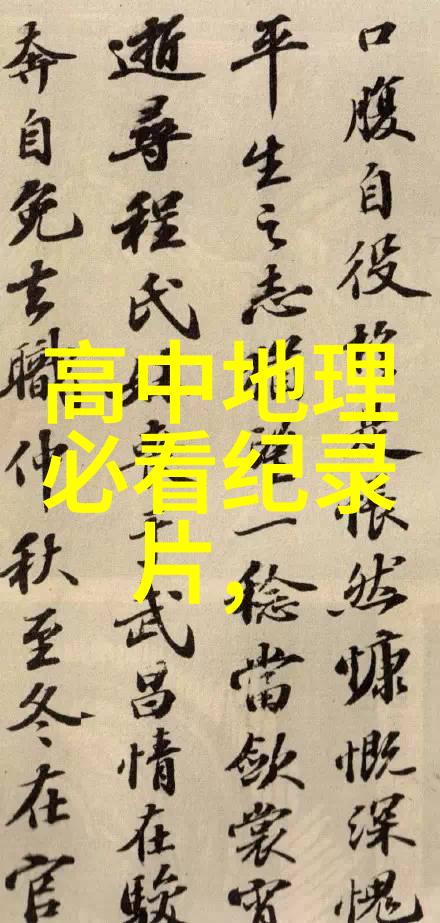 高中地理
必看纪录
片，
口腹自役 悵然慷慨深愧
平生之志 一稔當斂裳宵
逝尋程氏 武昌情在駿
奔自免去職仲秋至冬在官